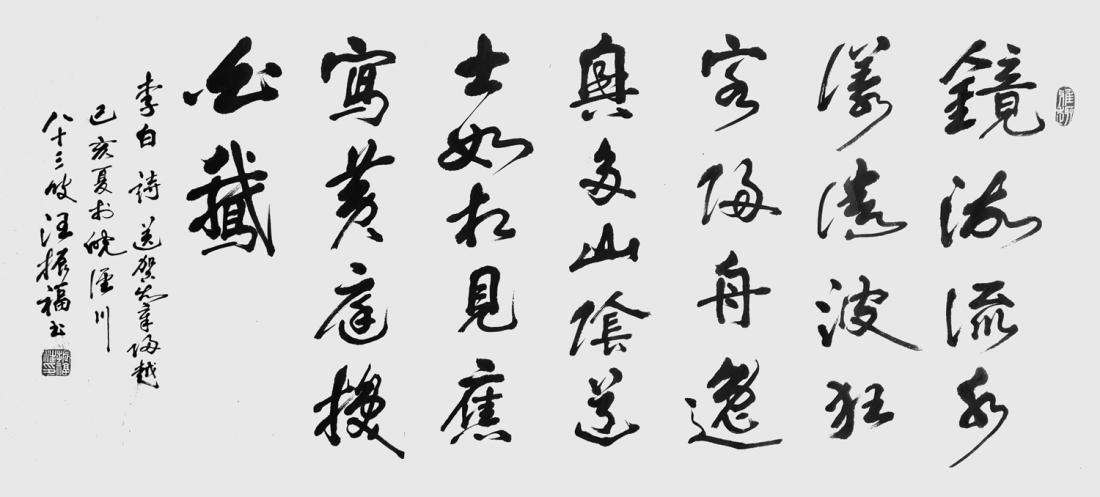 鏡湖流水
漾清波狂
客歸舟逸
興多山陰道
士如相見應
寫黃庭換
白鵝
李白詩送賀知章歸越
己亥夏於皖涇川
八十三汪振福书